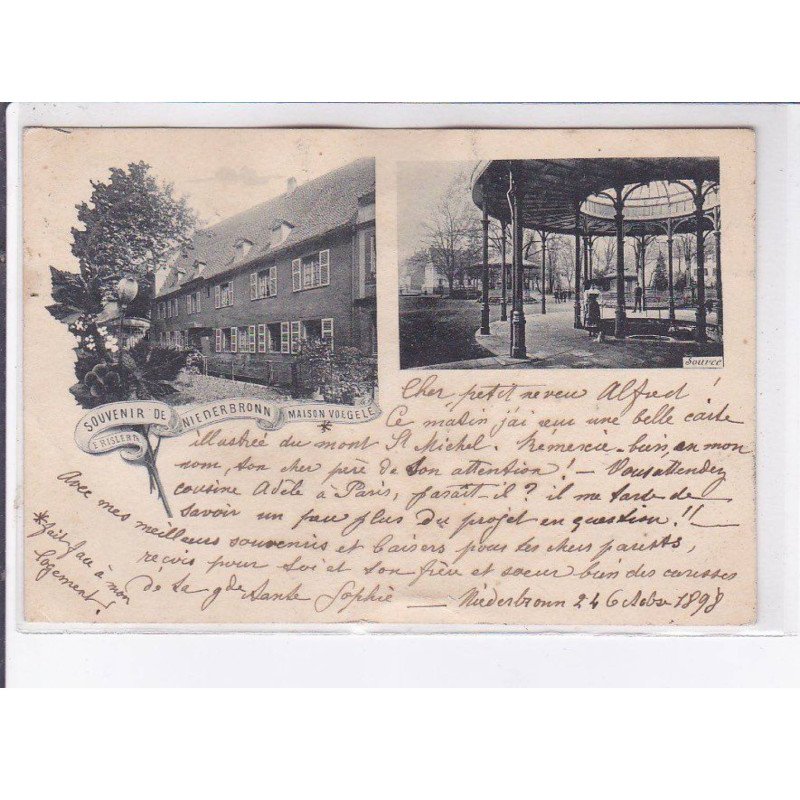 Source
SOUVENIR DE NIEDERBRONN MAISON VOEGELÉ
*
Cher petit neveu Alfred!
Ce matin j'ai reçu une belle carte
illustrée du mont St Michel. Remercie-bien, en mon
nom, ton cher père de son attention! — Vous attendez
cousine Adèle à Paris, paraît-il? il me tarde de
savoir un peu plus du projet en question!! —
Avec mes meilleurs souvenirs et baisers pour tes chers parents,
reçois pour toi et ton frère et soeur bien des caresses
de ta gde tante Sophie — Niederbronn 24 Octobre 1898
* fait face à mon
logement!